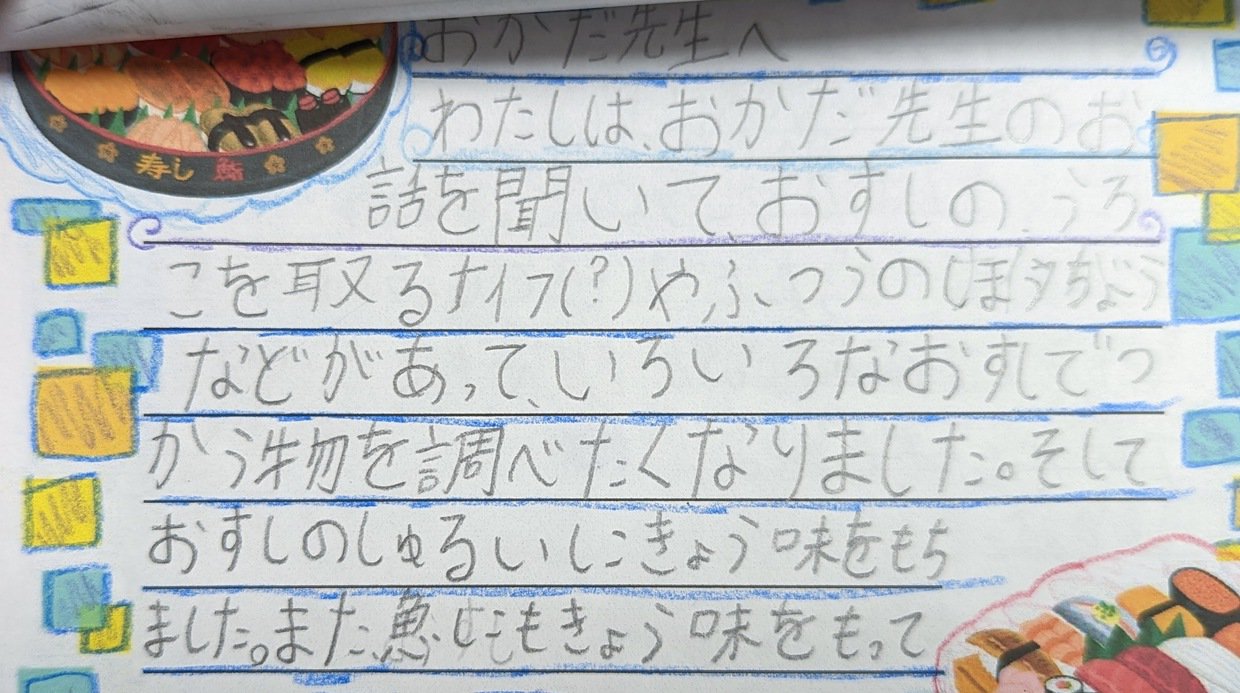 寿し 鮨
おかだ先生へ
わたしは、おかだ先生のお
話を聞いて、おすしの、うろ
こを取るナイフ(?)や、ふつうのほうちょう
などがあって、いろいろなおすしでつ
かう物を調べたくなりました。そして
おすしのしゅるいにきょう味をもち
ました。また魚にもきょう味をもって